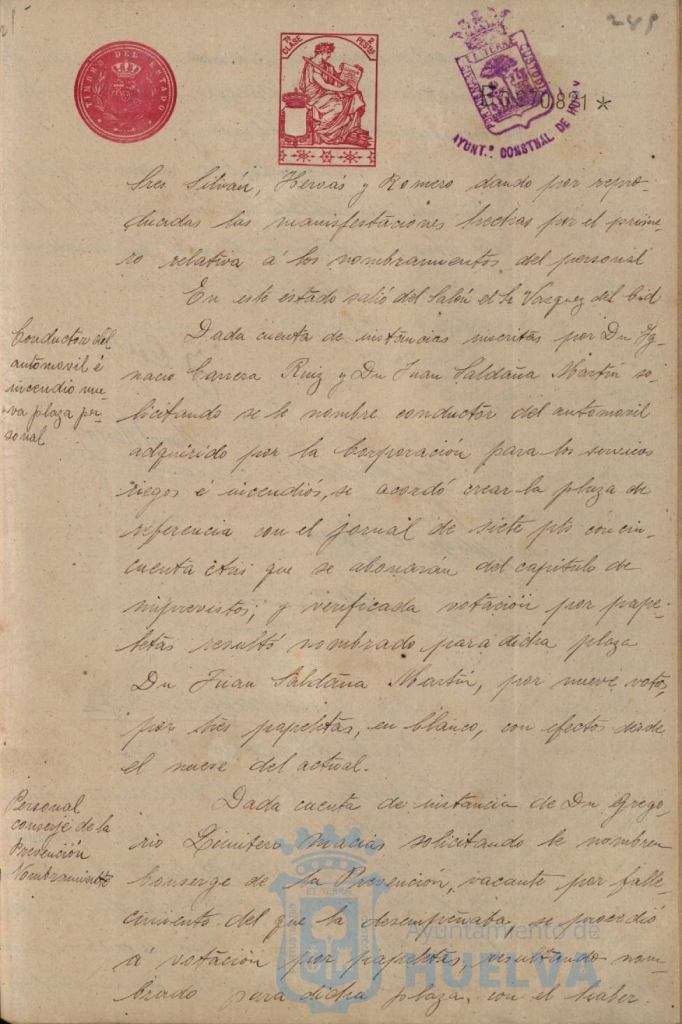 TIMBRE DEL ESTADO
7ª CLASE
2 PESETAS
AYUNT.º CONSTNAL. DE HUELVA
0.870.821 *
Sres Silván, Hervás y Romero dando por repro-
ducidas las manifestaciones hechas por el prime-
ro relativa á los nombramientos del personal
En este estado salió del Salón el Sr Vazquez del Cid
Conductor del
automovil é
incendio nue-
va plaza per-
sonal
Dada cuenta de instancias suscritas por Dn Ig-
nacio Carrera Ruiz y Dn Juan Saldaña Martín so-
licitando se le nombre conductor del automovil
adquirido por la Corporación para los servicios
riegos é incendios, se acordó crear la plaza de
referencia con el jornal de siete pts con cin-
cuenta ctas que se abonarán del capitulo de
imprevistos; y verificada votación por pape-
letas resultó nombrado para dicha plaza
Dn Juan Saldaña Martín, por nueve votos,
por tres papeletas, en blanco, con efectos desde
el nueve del actual.
Personal
conserje de la
Prevención
Nombramiento
Dada cuenta de instancia de Dn Grego-
rio Limitero Macias solicitando le nombren
Conserge de la Prevención, vacante por falle-
cimiento del que la desempeñaba se procedió
á votación por papeletas, resultando nom-
brado para dicha plaza, con el haber
Ayuntamiento de
HUELVA